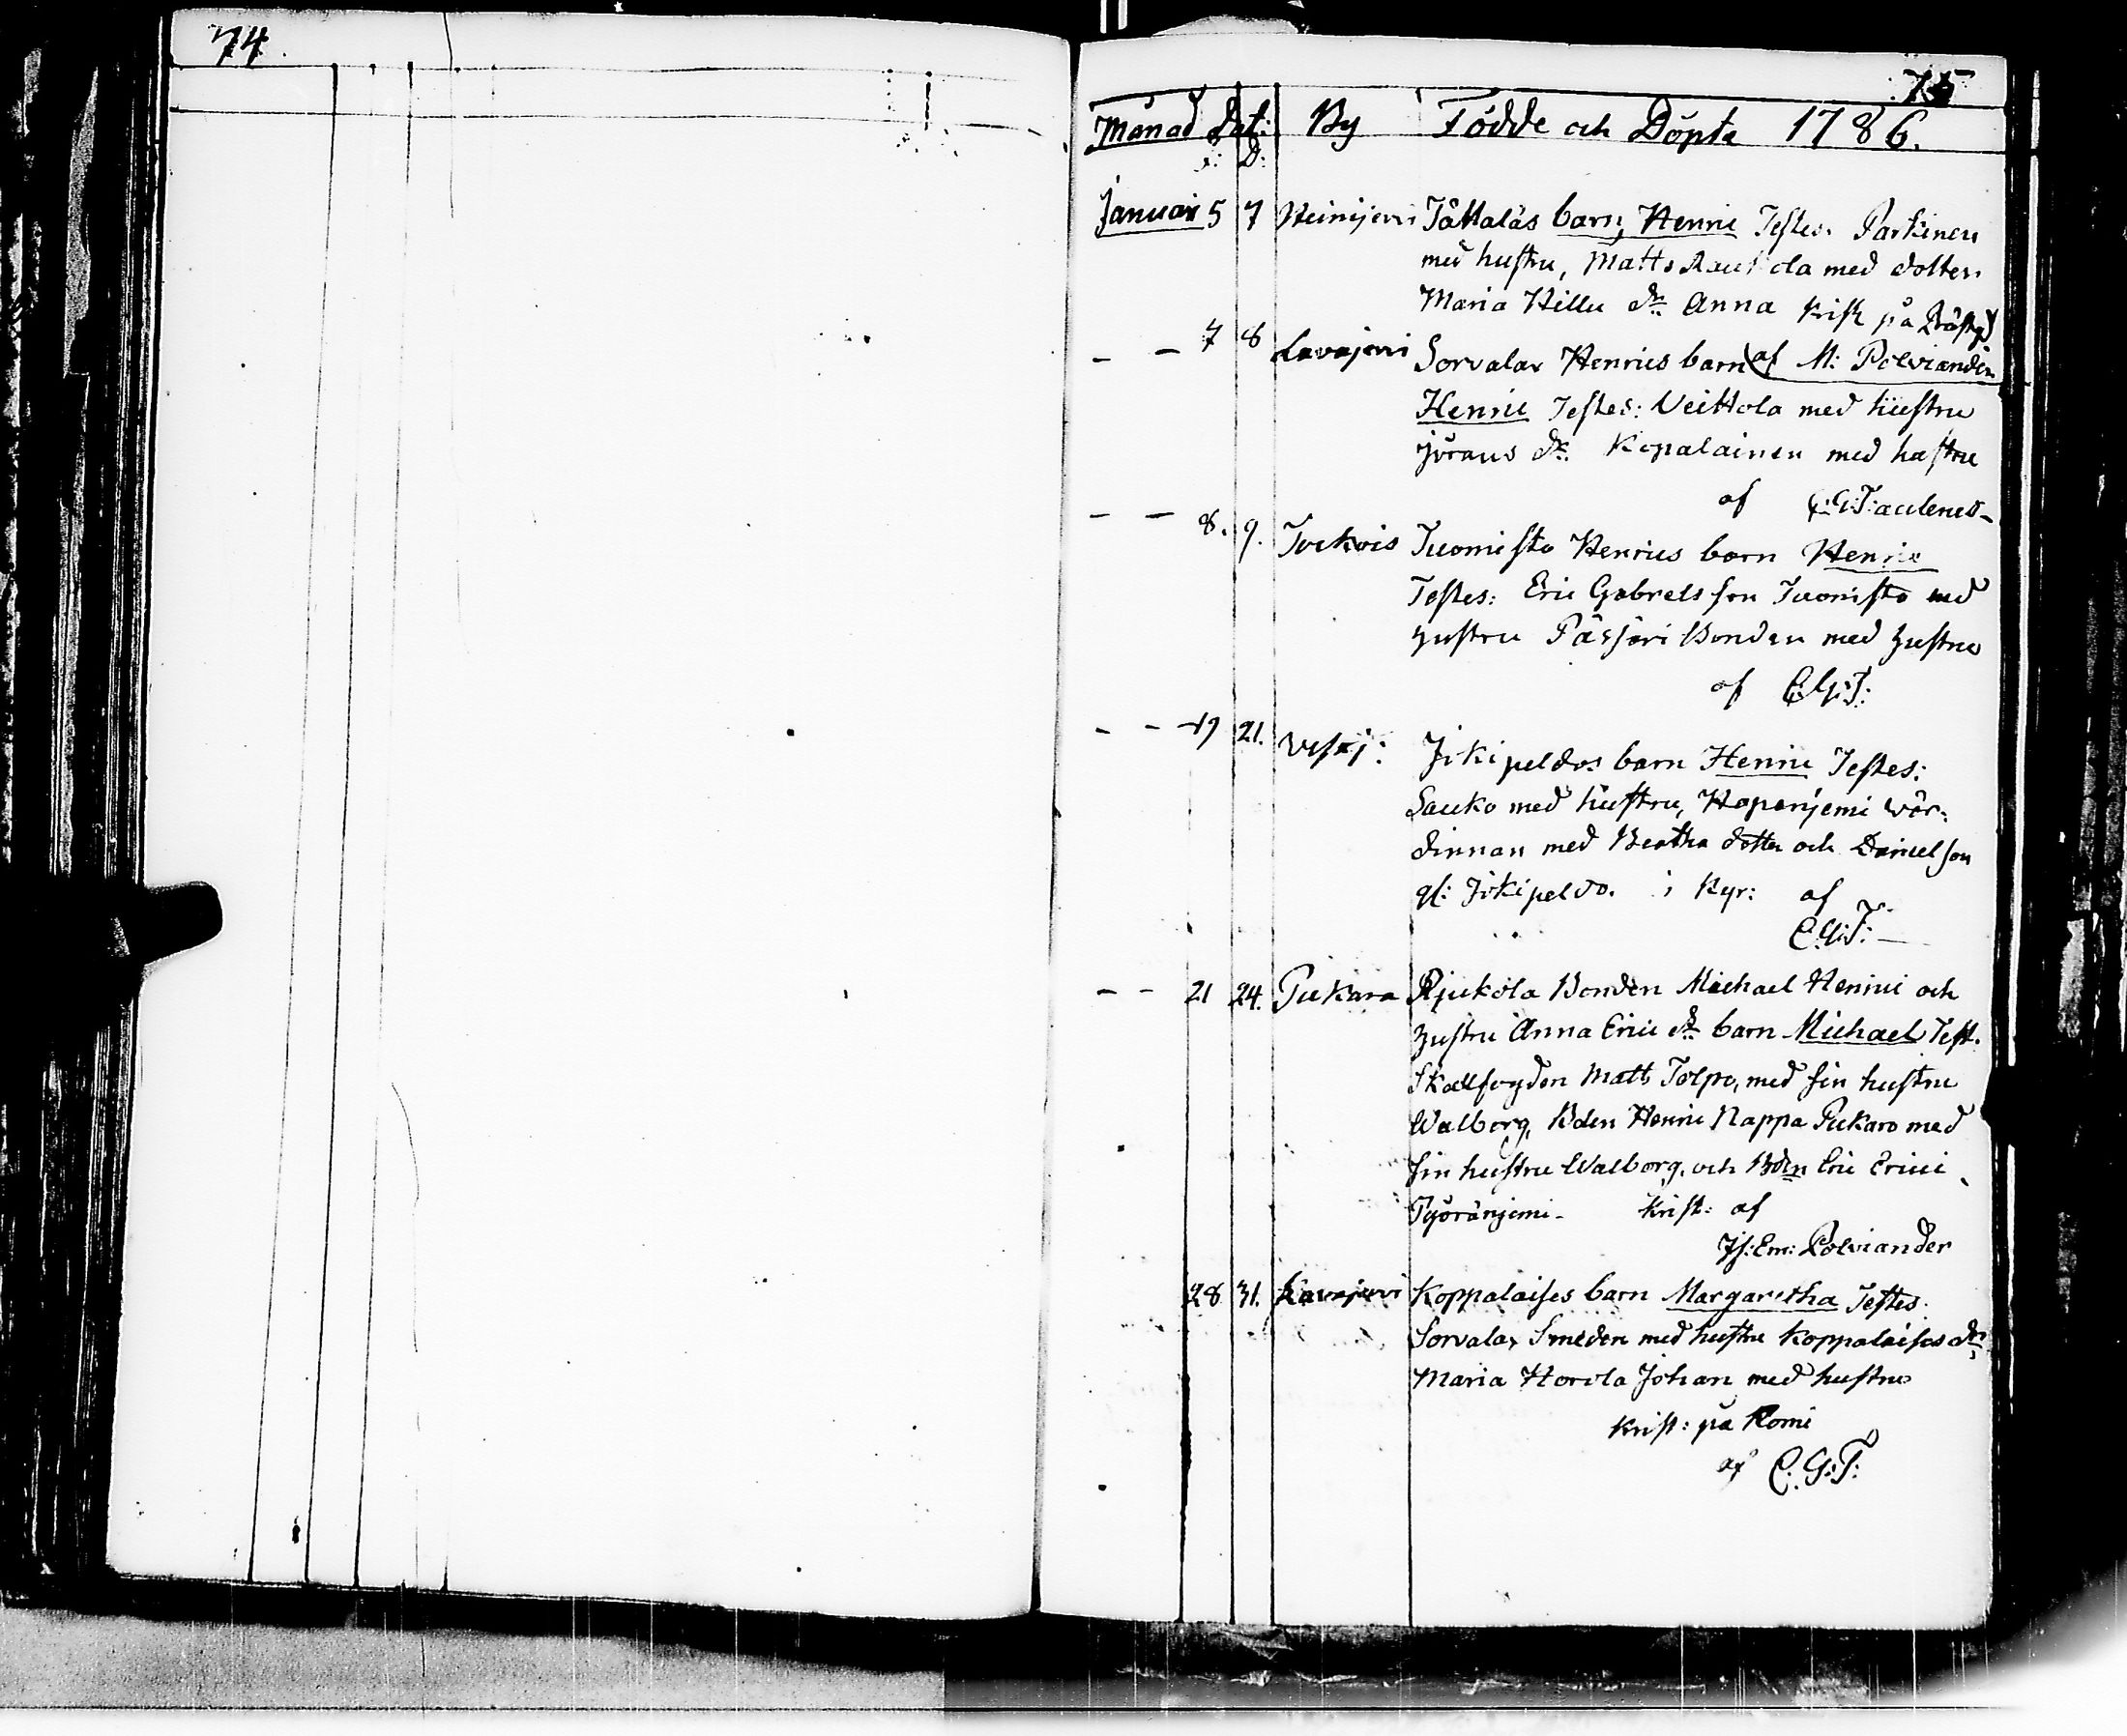 74
75
Månad Dat: By Födde och Döpte 1786.
f: D:
Januari 5 7 Heinijervi Tåttalas barn, Henric Testes: Parkinen
med hustru, Matts Rautola med dotter
Maria Hillu dr Anna krist på Präst
- - 7 8 Lavajervi Sorvalax Henrics barn af M: Polviander
Henric Testes: Veittola med hustru
jörans dr Kopalainen med hustru
af C:G:T:aulenes-
- - 8. 9. Juckois Tuomisto Henrics barn Henric
Testes: Eric Gabrels son Tuomisto med
hustru Päsjäri Bonden med hustru
af C:G:T:
- - 19 21. Vesaj: Jikipeldos barn Henric Testes:
Sauko med hustru, Haparijemi vär-
dinnan med Beatha dotter och Daniel son
gl: Jikipeldo. i Kyr: af
C.G:T:
- - 21 24. Pukara Rjukola Bonden Michael Henrici och
hustru Anna Erici dr barn Michael Test.
Skallfogden Matts Tolpo, med sin hustru
Walborg, Bden Henric Nappa Pukaro med
sin hustru Walborg, och Bden Eric Erici
Pyöränjemi- krist: af
Is:Em: Polviander
28 31. Lavajervi Koppalaises barn Margaretha Testes
Sorvalax Smeden med hustru Koppalaises dr
Maria Horola Johan med hustru
krist: på Komi
af C. G:T: